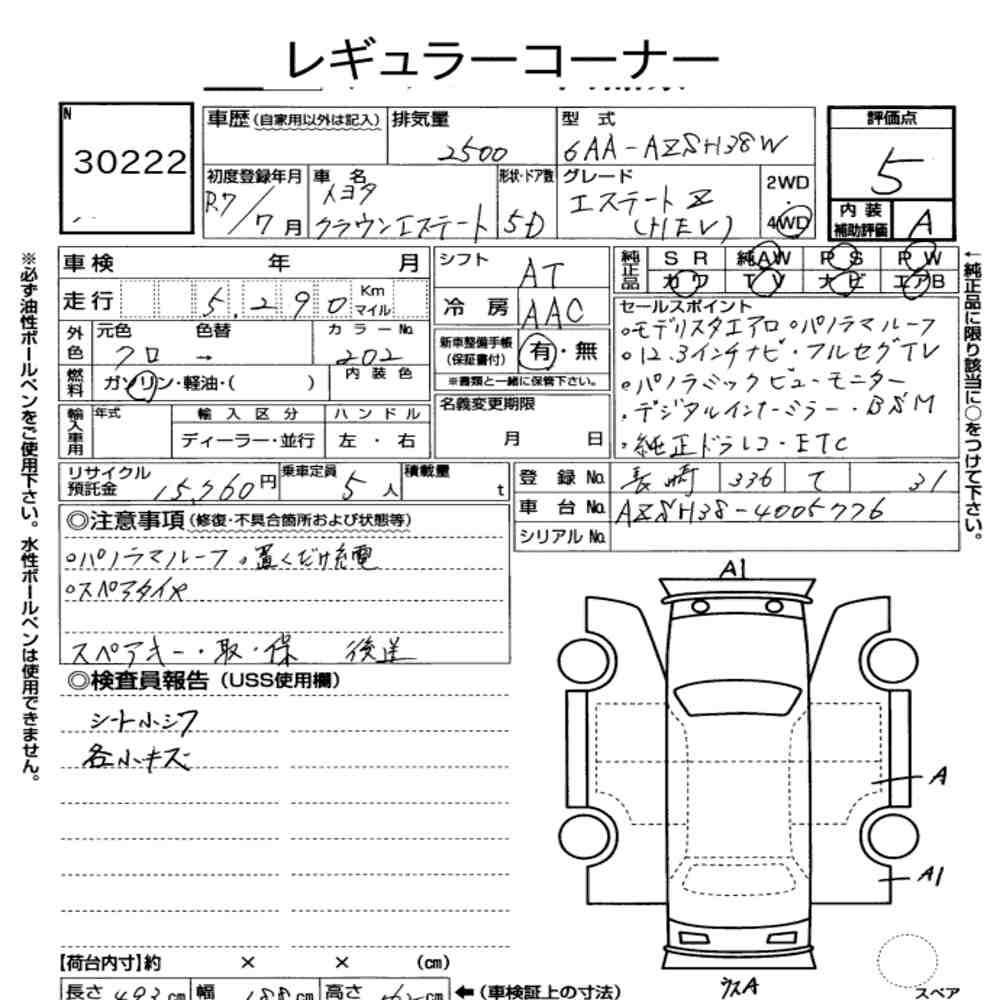 レギュラーコーナー
N
30222
車歴(自家用以外は記入)
排気量
2500
型式
6AA-AZSH38W
評価点
5
初度登録年月
R7/7月
車名
トヨタ
クラウンエステート
形状・ドア数
5D
グレード
エステートZ
(HEV)
2WD
4WD
内装
補助評価
A
車検 年 月
走行 5,290 Km マイル
シフト AT
冷房 AAC
純正品
SR 純AW PS PW
カワ TV ナビ エアB
外色
元色 色替 カラーNo.
クロ → 202
燃料
ガソリン・軽油・( )
内装色
新車整備手帳
(保証書付)
有・無
※書類と一緒に保管下さい。
セールスポイント
○モデリスタエアロ ○パノラマルーフ
○12.3インチナビ・フルセグTV
○パノラミックビューモニター
・デジタルインナーミラー・BSM
・純正ドラレコ・ETC
輸入車用
年式
輸入区分
ハンドル
ディーラー・並行
左・右
名義変更期限
月 日
リサイクル
預託金
15,760円
乗車定員
5人
積載量
t
登録No. 長崎 336 て 31
車台No. AZSH38-4005776
シリアルNo.
◎注意事項(修復・不具合箇所および状態等)
○パノラマルーフ。置くだけ充電
○スペアタイヤ
スペアキー・取・保 後送
◎検査員報告(USS使用欄)
シート小シワ
各小キズ
A1
A
A1
スペア
【荷台内寸】約 × × (cm)
長さ 493cm 幅 188cm 高さ cm ←(車検証上の寸法)
※必ず油性ボールペンをご使用下さい。水性ボールペンは使用できません。
←純正品に限り該当に○をつけて下さい。